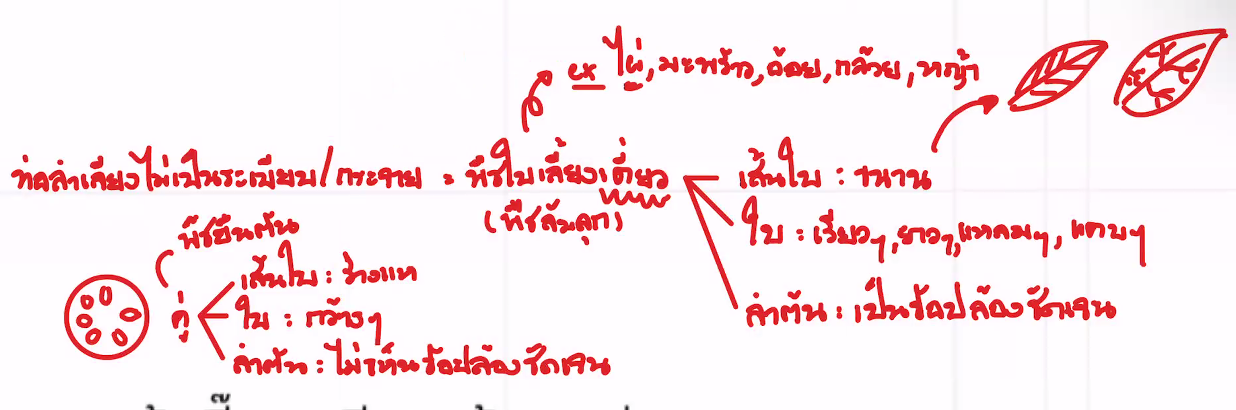 ex ไผ่, มะพร้าว, อ้อย, กล้วย, หญ้า
ท่อลำเลียงไม่เป็นระเบียบ/กระจาย = พืชใบเลี้ยงเดี่ยว
(พืชล้มลุก)
เส้นใบ : ขนาน
ใบ : เรียวๆ, ยาวๆ, แหลมๆ, แคบๆ
ลำต้น : เป็นข้อปล้องชัดเจน
พืชยืนต้น
คู่
เส้นใบ : ร่างแห
ใบ : กว้างๆ
ลำต้น : ไม่เห็นข้อปล้องชัดเจน